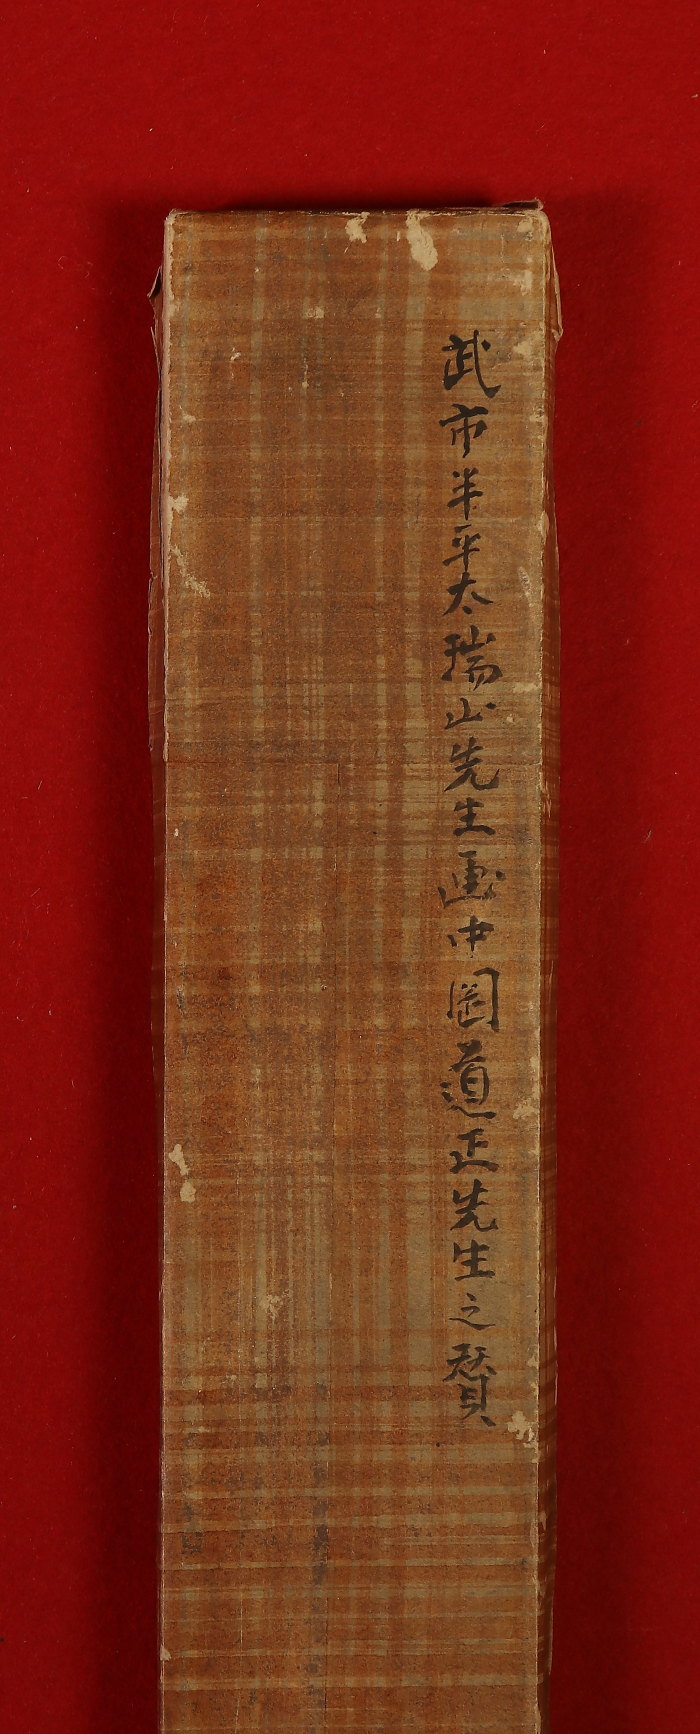 武市半平太瑞山先生画中岡道正先生之賛